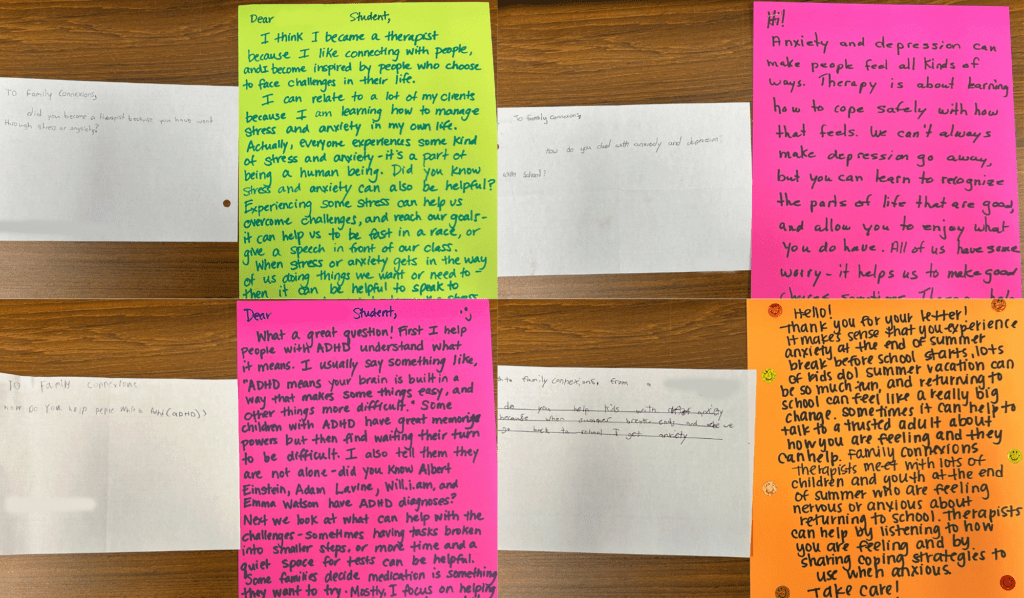 TO Family Connexions,
did you become a therapist because you have went
through stress or anxiety?
Dear Student,
I think I became a therapist
because I like connecting with people,
and become inspired by people who choose
to face challenges in their life.
I can relate to a lot of my clients
because I am learning how to manage
stress and anxiety in my own life.
Actually, everyone experiences some kind
of stress and anxiety - it's a part of
being a human being. Did you know
stress and anxiety can also be helpful?
Experiencing some stress can help us
overcome challenges, and reach our goals -
it can help us to be fast in a race, or
give a speech in front of our class.
When stress or anxiety gets in the way
of us doing things we want or need to -
then it can be helpful to speak to
To family connexions
How do you deal with anxiety and depression?
with School!
Hi!
Anxiety and depression can
make people feel all kinds of
ways. Therapy is about learning
how to cope safely with how
that feels. We can't always
make depression go away,
but you can learn to recognize
the parts of life that are good,
and allow you to enjoy what
you do have. All of us have some
worry - it helps us to make good
TO Family
How Do You help peple with a (ADHD)?
Dear Student,
What a great question! First I help
people with ADHD understand what
it means. I usually say something like,
"ADHD means your brain is built in a
way that makes some things easy, and
other things more difficult." Some
children with ADHD have great memories
powers but then find waiting their turn
to be difficult. I also tell them they
are not alone - did you know Albert
Einstein, Adam Lavine, Will.i.am, and
Emma Watson have ADHD diagnoses?
Next we look at what can help with the
challenges - sometimes having tasks broken
into smaller steps, or more time and a
quiet space for tests can be helpful.
Some families decide medication is something
they want to try. Mostly, I focus on helping
to family connexions, from a
do you help kids with anxiety
because when summer breake ends and we
go back to school I get anxiety
Hello!
Thank you for your letter!
It makes sense that you experience
anxiety at the end of summer
break before school starts, lots
of kids do! Summer vacation can
be so much fun, and returning to
school can feel like a really big
change. Sometimes it can help to
talk to a trusted adult about
how you are feeling and they
can help. Family Connexions
Therapists meet with lots of
children and youth at the end
of summer who are feeling
nervous or anxious about
returning to school. Therapists
can help by listening to how
you are feeling and by
sharing coping strategies to
use when anxious.
Take care!